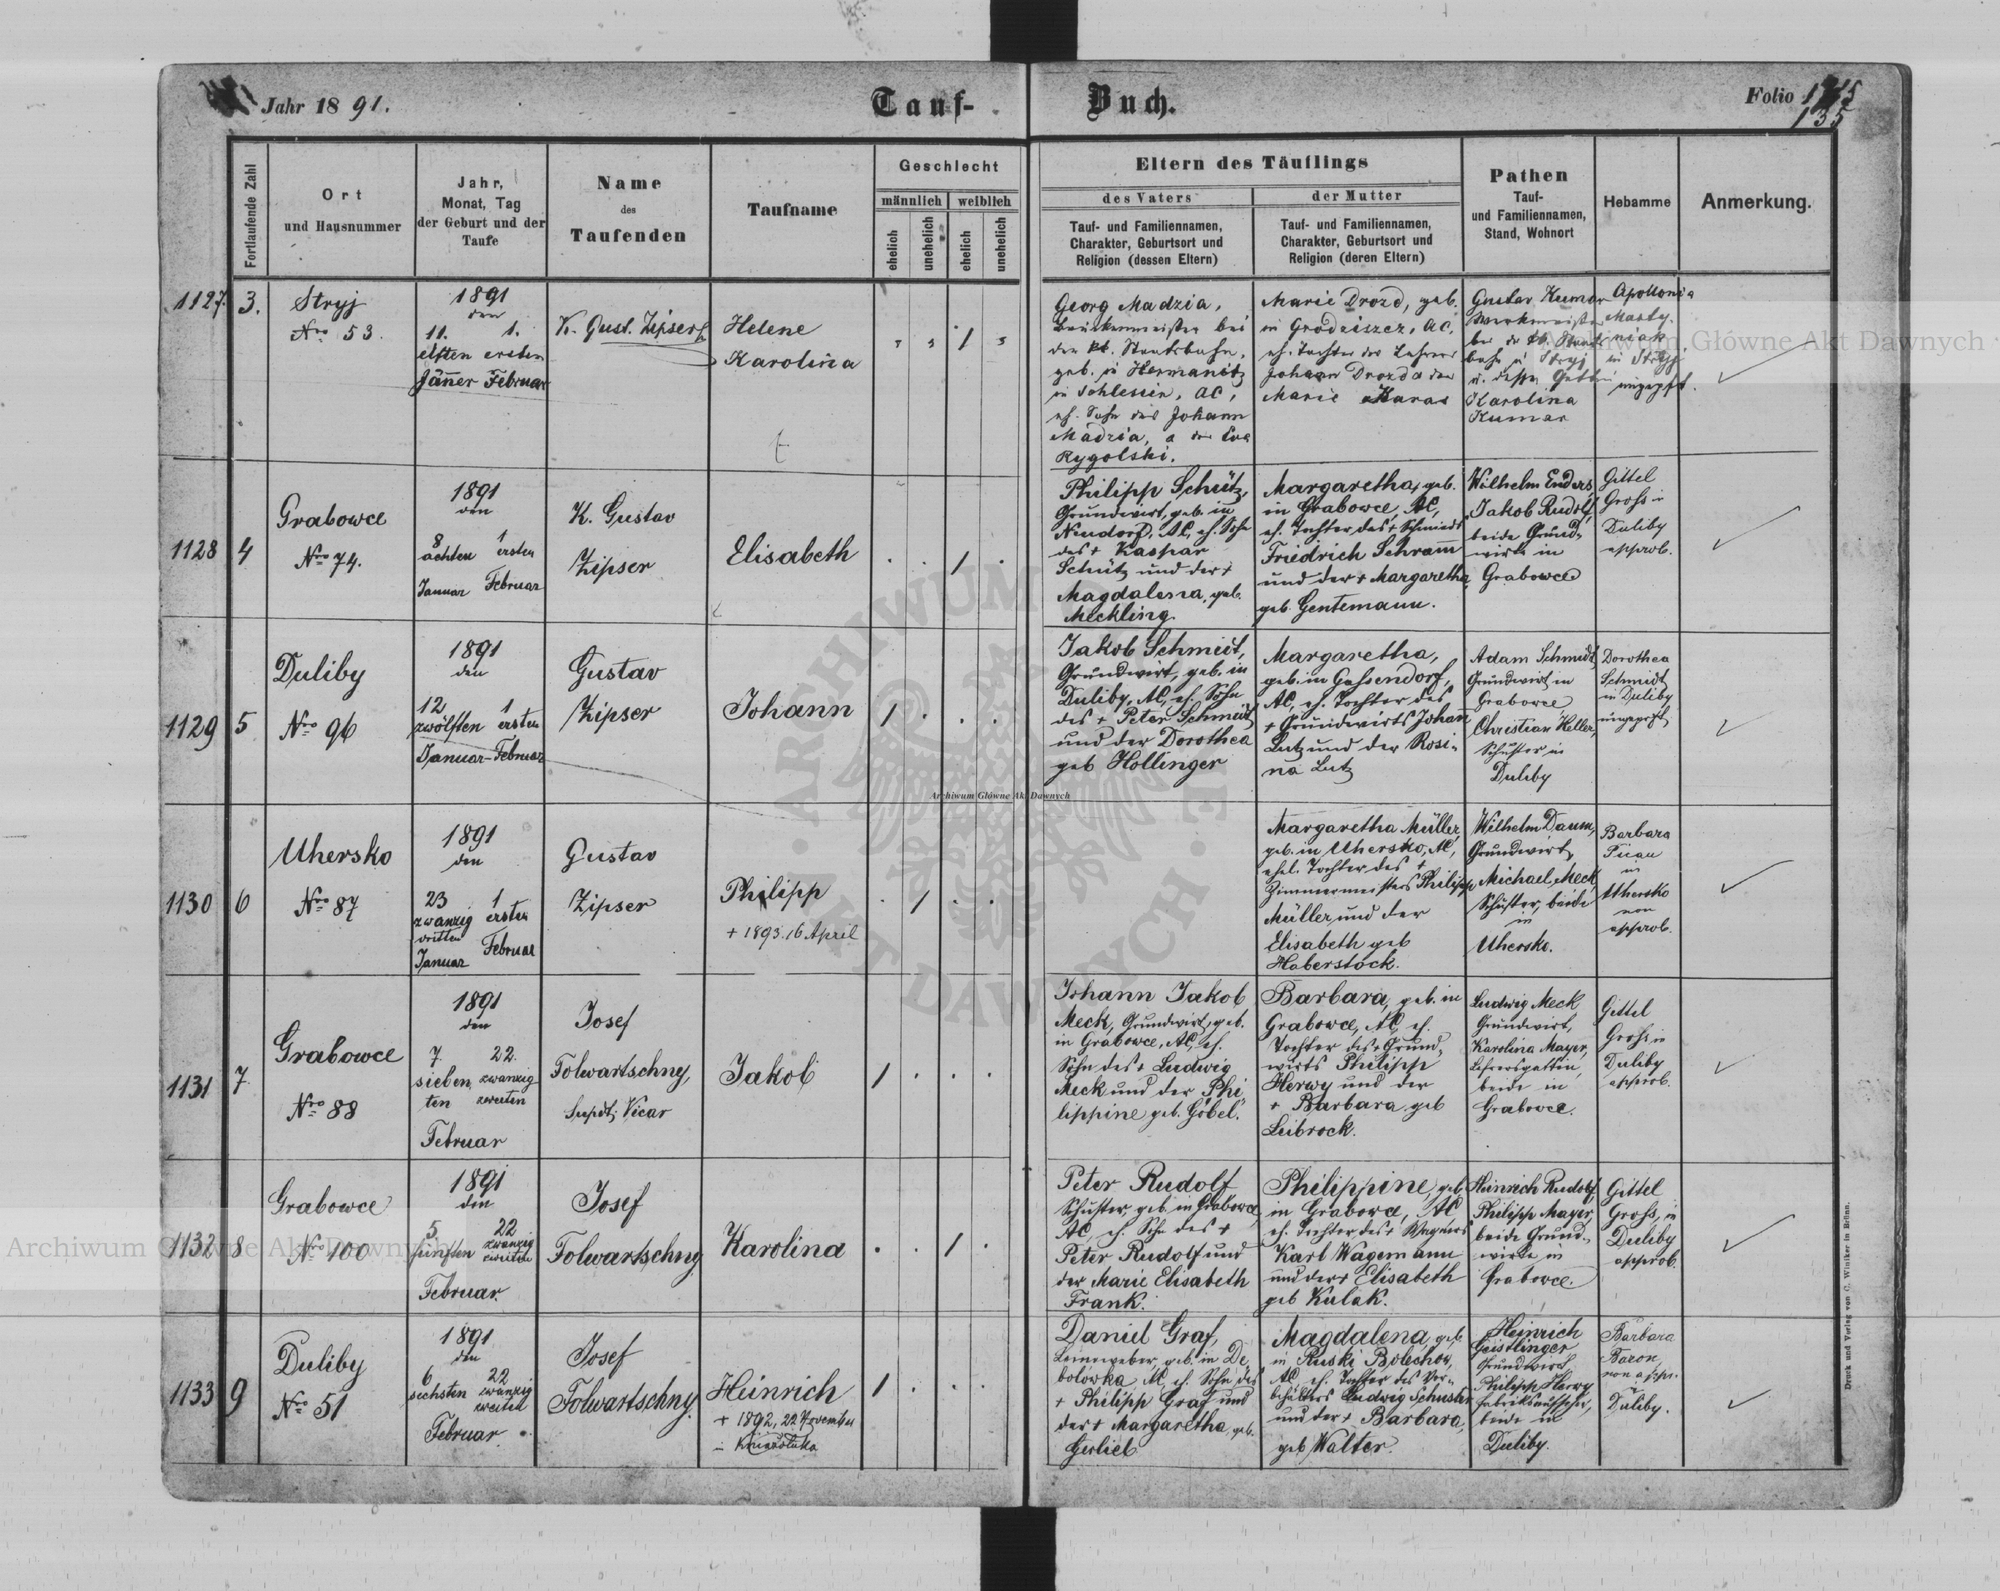 Jahr 1891.
Tauf-
Buch.
Folio
135
Fortlaufende Zahl
Ort
und Hausnummer
Jahr,
Monat, Tag
der Geburt und der
Taufe
Name
des
Taufenden
Taufname
Geschlecht
männlich
weiblich
ehelich
unehelich
ehelich
unehelich
Eltern des Täuflings
des Vaters
Tauf- und Familiennamen,
Charakter, Geburtsort und
Religion (dessen Eltern)
der Mutter
Tauf- und Familiennamen,
Charakter, Geburtsort und
Religion (deren Eltern)
Pathen
Tauf-
und Familiennamen,
Stand, Wohnort
Hebamme
Anmerkung.
1127.
3.
Stryj
Nro 53.
1891
den
11. 1.
elften ersten
Jänner Februar
K. Gust. Zipser
Helene
Karolina
Georg Madzia,
Brückenmeister bei
der kk. Staatsbahn,
geb. in Hermanitz
in Schlesien, AC,
eh. Sohn des Johann
Madzia, u der Eva
Rygolski.
Marie Drozd, geb.
in Grodziszcz, AC,
eh. Tochter des Lehrers
Johann Drozd u der
Marie Karas
Gustav Kumor
Werkmeister
bei der kk. Staats
bahn in Stryj
u. dessen Gattin
Karolina
Kumor
Apollonia
Marty-
niak
in Stryj
ungeprft.
1128
4
Grabowce
Nro 74.
1891
den
8 1
achten ersten
Januar Februar
K. Gustav
Zipser
Elisabeth
Philipp Schütz,
Grundwirt, geb. in
Neudorf, AC, eh. Sohn
des + Kaspar
Schütz und der +
Magdalena, geb.
Meckling.
Margaretha, geb.
in Grabowce, AC,
eh. Tochter des + Schmieds
Friedrich Schram
und der + Margaretha,
geb. Gentemann.
Wilhelm Enders,
Jakob Rudolf,
beide Grund-
wirte in
Grabowce
Gittel
Gross in
Duliby
approb.
1129
5
Duliby
Nro 96
1891
den
12 1
zwölften ersten
Januar Februar
Gustav
Zipser
Johann
Jakob Schmidt,
Grundwirt, geb. in
Duliby, AC, eh. Sohn
des + Peter Schmidt
und der Dorothea
geb Hollinger
Margaretha,
geb. in Gassendorf,
AC, eh. Tochter des
+ Grundwirts Johan
Lutz und der Rosi-
na Lutz
Adam Schmidt
Grundwirt in
Grabowce
Christian Keller,
Schuster in
Duliby
Dorothea
Schmidt
in Duliby
ungeprft
1130
6
Uhersko
Nro 87
1891
den
23 1
zwanzig ersten
dritten
Januar Februar
Gustav
Zipser
Philipp
+ 1893. 16 April
Margaretha Müller,
geb. in Uhersko, AC,
ehel. Tochter des +
Zimmermeisters Philipp
Müller und der
Elisabeth geb
Haberstock.
Wilhelm Daum,
Grundwirt,
Michael Meck
Schuster, beide
in
Uhersko.
Barbara
in
Uhersko
non
approb.
1131
7
Grabowce
Nro 88
1891
den
7. 22.
sieben zwanzig
ten zweiten
Februar
Josef
Folwartschny,
Supdt. Vicar
Jakob
Johann Jakob
Meck, Grundwirt, geb.
in Grabowce, AC, eh.
Sohn des + Ludwig
Meck und der Phi-
lippine geb. Göbel.
Barbara, geb. in
Grabowce, AC, eh.
Tochter des + Grund-
wirts Philipp
Herwy und der
+ Barbara geb
Leibrock.
Ludwig Meck
Grundwirt,
Karolina Mayer,
Lehrersgattin,
beide in
Grabowce.
Gittel
Gross in
Duliby
approb.
1132
8
Grabowce
Nro 100
1891
den
5 22
fünften zwanzig
zweiten
Februar
Josef
Folwartschny
Karolina
Peter Rudolf
Schuster, geb. in Grabowce,
AC, eh. Sohn des +
Peter Rudolf und
der Marie Elisabeth
Frank.
Philippine, geb
in Grabowce, AC
eh. Tochter des + Wagners
Karl Wagemann
und der + Elisabeth
geb Kulak.
Heinrich Rudolf,
Philipp Mayer,
beide Grund-
wirte in
Grabowce.
Gittel
Gross, in
Duliby
approb.
1133
9
Duliby
Nro 51
1891
den
6 22
sechsten zwanzig
zweiten
Februar
Josef
Folwartschny.
Heinrich
+ 1892, 22 November
in Kniazoluka
Daniel Graf,
Leinweber, geb. in De-
bolowka AC, eh. Sohn des
+ Philipp Graf und
der + Margaretha, geb.
Gerliel
Magdalena, geb.
in Ruski Bolechow,
AC, eh. Tochter des Ver-
behälters Ludwig Schuster
und der + Barbara,
geb Walter.
Heinrich
Geistlinger
Grundwirt,
Philipp Herwy
Fabriksaufseher,
beide in
Duliby.
Barbara
Baron,
non appr.
in
Duliby.
Druck und Verlag von C. Winiker in Brünn.
Archiwum Główne Akt Dawnych
Archiwum Główne Akt Dawnych
Archiwum Główne Akt Dawnych
ARCHIWUM
AKT DAWNYCH